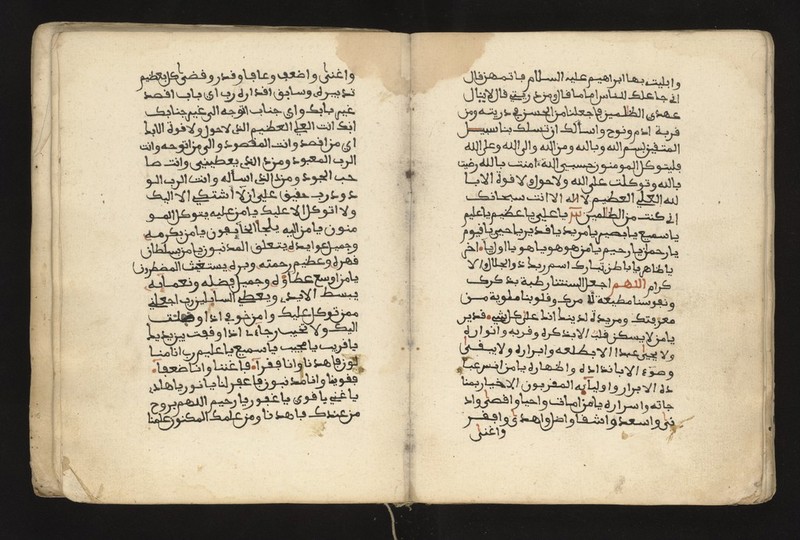 وابليت بها ابراهيم عليه السلام فاتمهن قال
اني جاعلك للناس اماما قال ومن ذريتي قال لا ينال
عهدي الظلمين فاجعلنا من المحسنين من ذريته ومن
ذرية ادم ونوح واسألك ان تسلك بنا سبيل
المتقين بسم الله وبالله ومن الله والى الله وعلى الله
فليتوكل المومنون حسبي الله امنت بالله رضيت
بالله وتوكلت على الله ولا حول ولا قوة الا با
لله العلي العظيم لا اله الا انت سبحانك
اني كنت من الظلمين يا علي يا عظيم يا عليم
يا سميع يا بصير يا مريد يا قدير يا حي يا قيوم
يا رحمن يا رحيم يا من هو هو يا هو يا اول يا اخر
يا ظاهر يا باطن تبارك اسم ربك ذي الجلال والا
كرام اللهم اجعل السنتنا رطبة بذكرك
ونفوسنا مطيعة لامرك وقلوبنا مملوءة من
معرفتك انك على كل شيء قدير
يا من لا يسكن قلب الا بذكره وقربه وانواره
ولا يحيى عبد الا بلطفه وابراره ولا يبقى
وجود الا بامداده واظهاره يا من انس عبا
ده الابرار واولياءه المقربون الاخيار بمنا
جاته واسراره يا من امات واحيا واقصى واد
نى واسعد واشقى واضل واهدى وافقر
واغنى
واغنى وعافا وقدر وقضى كل بعظيم
تدبيره وسابق اقداره رب اي باب اقصد
غير بابك واي جناب اتوجه الى غير جنابك
انك انت العلي العظيم الذي لا حول ولا قوة الا بك
الى من اقصد وانت المقصود والى من اتوجه وانت
الرب المعبود ومن ذا الذي يعطيني وانت صا
حب الجود ومن ذا الذي اسأله وانت الرب الو
دود رب حقيق علي ان لا اشتكي الا اليك
ولا اتوكل الا عليك يا من عليه يتوكل المو
منون يا من اليه يلجأ الخايفون يا من بكرمه
وجميل عوايده يتعلق المذنبون يا من بسلطان
قهره وعظيم رحمته وبره يستغيث المضطرون
يا من لوسع عطاؤه وجميل فضله ونعمائه
يبسط الايدي ويعطي السايلين رب اجعلني
ممن توكل عليك وامن خوفي اذا وصلت
اليك ولا تخيب رجاءي اذا وقفت بين يديك
يا قريب يا مجيب يا سميع يا عليم رب انا منا
لون فاهدنا وانا فقرآء فاغننا وانا ضعفآء
فقونا وانا مذنبون فاغفر لنا يا نور يا هادي
يا غني يا قوي يا غفور يا رحيم اللهم بروح
من عندك فاهدنا ومن علمك المكنون علمنا